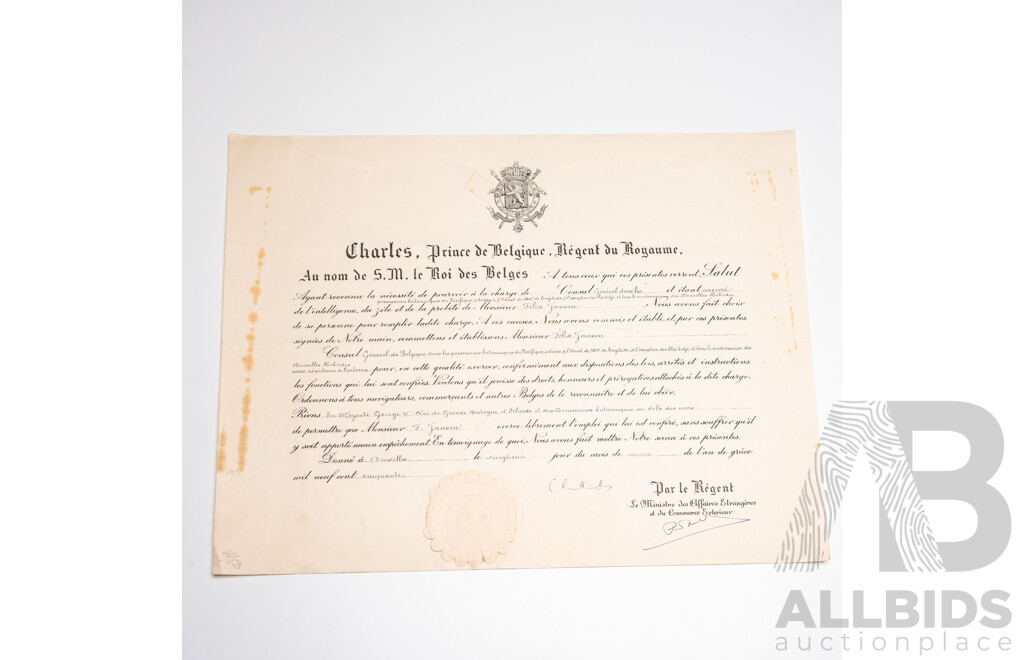 Charles, Prince de Belgique, Régent du Royaume,
Au nom de S.M. le Roi des Belges A tous ceux qui ces présentes verront, Salut
Ayant reconnu la nécessité de pourvoir à la charge de Consul Général dans les et étant assuré
de l'intelligence, du zèle et de la probité de Monsieur Félix Jansen Nous avons fait choix
de sa personne pour remplir ladite charge. A ces causes, Nous avons commis et établi, et par ces présentes
signées de Notre main, commettons et établissons Monsieur Félix Jansen
Consul Général de Belgique dans les possessions britanniques du Pacifique
Nouvelles Hébrides pour, en cette qualité exercer, conformément aux dispositions des lois, arrêtés et instructions,
les fonctions qui lui sont confiées. Voulons qu'il jouisse des droits, honneurs et prérogatives attachés à la dite charge.
Ordonnons à tous navigateurs, commerçants et autres Belges de le reconnaître et de lui obéir.
Prions Sa Majesté George VI Roi de Grande Bretagne, d'Irlande et des Dominions britanniques au delà des mers
de permettre que Monsieur F. Jansen exerce librement l'emploi qui lui est conféré, sans souffrir qu'il
y soit apporté aucun empêchement. En témoignage de quoi, Nous avons fait mettre Notre sceau à ces présentes.
Donné à Bruxelles le jour du mois de mars de l'an de grâce
mil neuf cent cinquante
Par le Régent
Le Ministre des Affaires Etrangères
et du Commerce Extérieur
AB
ALLBIDS
auctionplace